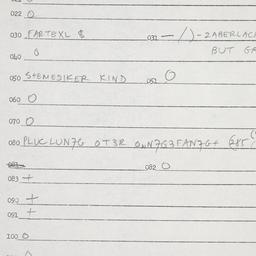 022 O
030 FARTEXL $ 031 — /)-ZABERLAC
BUT GR
040 O
050 STEMEDIKER KIND 051 O
060 O
070 O
080 PLUCLUN7G OT3R
081 082 O
083 +
090 +
091 +
100 O